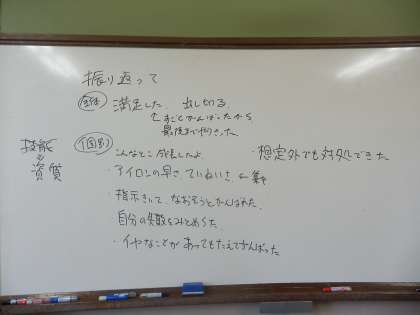 振り返って
全体 満足した 出し切る
↑すごくがんばったから
最後まで
技能
資質
個別
こんなとこ成長したよ
・想定外でも対処できた
・アイロンの早さ、ていねいさ
・指示きいて、なおそうとがんばれた
自分の失敗をみとめらた
・イヤなことがあってもたえてがんばった